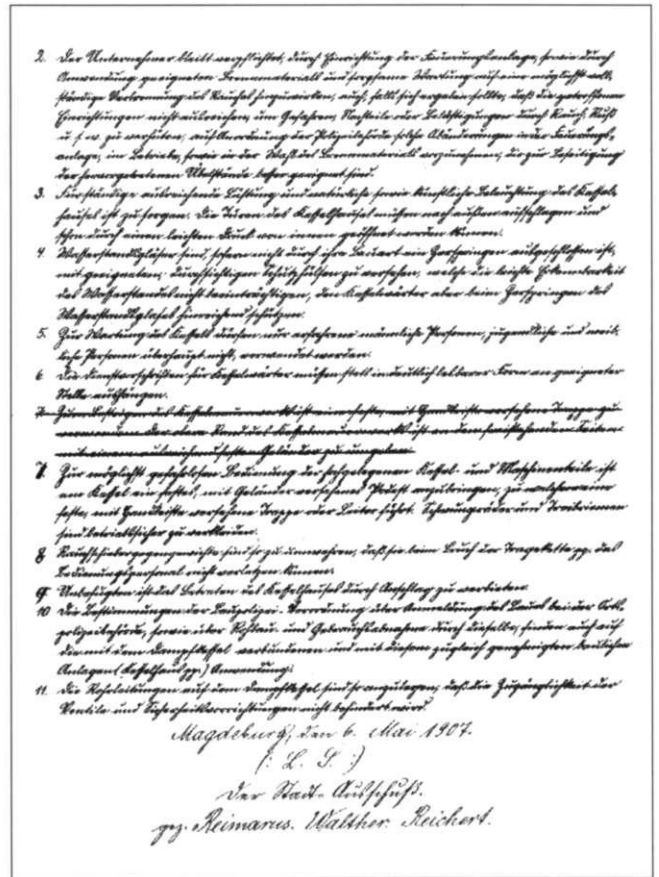 2. Der Unternehmer bleibt verpflichtet, durch Einrichtung der Feuerungsanlage, sowie durch
Anwendung geeigneten Brennmaterials und sorgsame Wartung auf eine möglichst voll-
ständige Verbrennung des Rauches hinzuwirken, auch, falls sich ergeben sollte, daß die getroffenen
Einrichtungen nicht ausreichen, um Gefahren, Nachteile oder Belästigungen durch Rauch, Ruß
u. s. w. zu verhüten, auf Anordnung der Polizeibehörde solche Abänderungen in der Feuerungs-
anlage, im Betriebe, sowie in der Wahl des Brennmaterials vorzunehmen, die zur Beseitigung
der hervorgetretenen Übelstände besser geeignet sind.
3. Für ständige ausreichende Lüftung und natürliche sowie künstliche Beleuchtung des Kessel-
hauses ist zu sorgen. Die Türen des Kesselhauses müssen nach außen aufschlagen und
schon durch einen leichten Druck von innen geöffnet werden können.
4. Wasserstandsgläser sind, sofern nicht durch ihre Bauart ein Zerspringen ausgeschlossen ist,
mit geeigneten, durchsichtigen Schutzhülsen zu versehen, welche die leichte Erkennbarkeit
des Wasserstandes nicht beeinträchtigen, den Kesselwärter aber beim Zerspringen des
Wasserstandsglases hinreichend schützen.
5. Zur Wartung des Kessels dürfen nur erfahrene männliche Personen, jugendliche und weib-
liche Personen überhaupt nicht, verwendet werden.
6. Die Dienstvorschriften für Kesselwärter müssen stets in deutlich lesbarer Form an geeigneter
Stelle aushängen.
7. Zum Besteigen des Kesselmauerwerks ist eine feste, mit Handleiste versehene Treppe zu
verwenden. Der obere Rand des Kesselmauerwerks ist an den freistehenden Seiten
mit einem ausreichend festen Geländer zu umgeben.
7. Zur möglichst gefahrlosen Bedienung der hochgelegenen Kessel- und Maschinenteile ist
am Kessel ein festes, mit Geländer versehenes Podest anzubringen, zu welchem eine
feste, mit Handleiste versehene Treppe oder Leiter führt. Schwungräder und Treibriemen
sind betriebssicher zu verkleiden.
8. Rauchschiebergegengewichte sind so zu umwehren, daß sie beim Bruch der Tragekette pp. das
Bedienungspersonal nicht verletzen können.
9. Unbefugten ist das Betreten des Kesselhauses durch Anschlag zu verbieten.
10. Die Bestimmungen der Baupolizei-Verordnung über Anmeldung des Baues bei der Orts-
polizeibehörde, sowie über Rohbau- und Gebrauchsabnahme durch dieselbe, finden auch auf
die mit dem Dampfkessel verbundenen und mit diesem zugleich genehmigten baulichen
Anlagen (Kesselhaus pp.) Anwendung.
11. Die Rohrleitungen auf dem Dampfkessel sind so anzulegen, daß die Zugänglichkeit der
Ventile und Sicherheitsvorrichtungen nicht behindert wird.
Magdeburg, den 6. Mai 1907.
(: L. S. :)
Der Stadt-Ausschuß.
gez. Reimarus. Walther. Reichert.